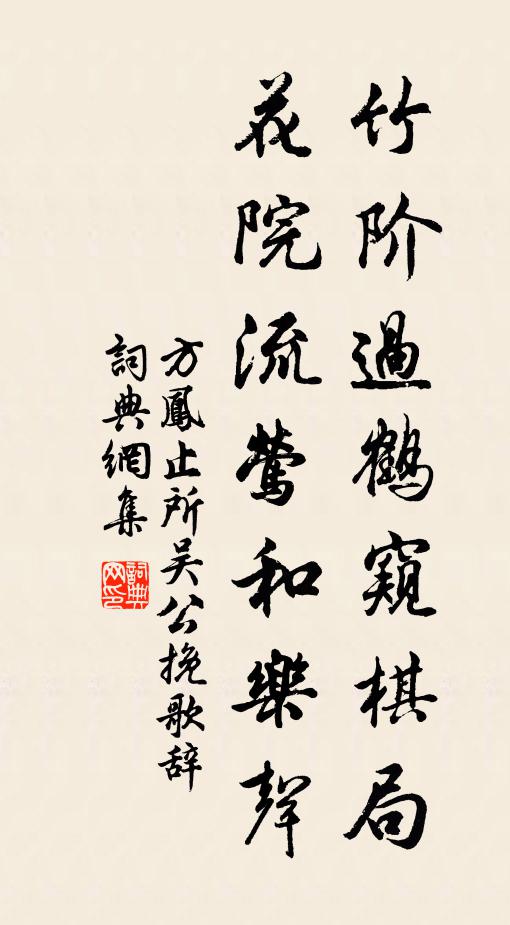 竹阶過鹤窺棋局
花院流莺和樂聲
方鳳止所吴公挽歌辞
詞典網集
詞典网印